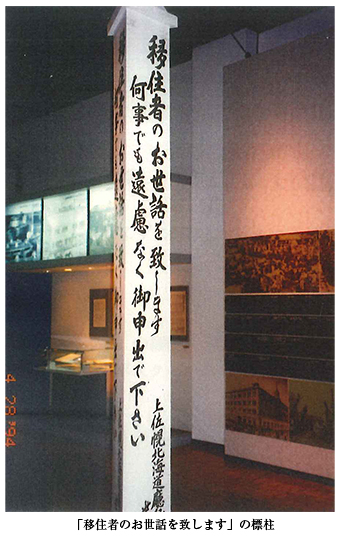 移住者のお世話を致します
何事でも遠慮なく御申出で下さい
上佐幌北海道廳
4 28 '94
「移住者のお世話を致します」の標柱